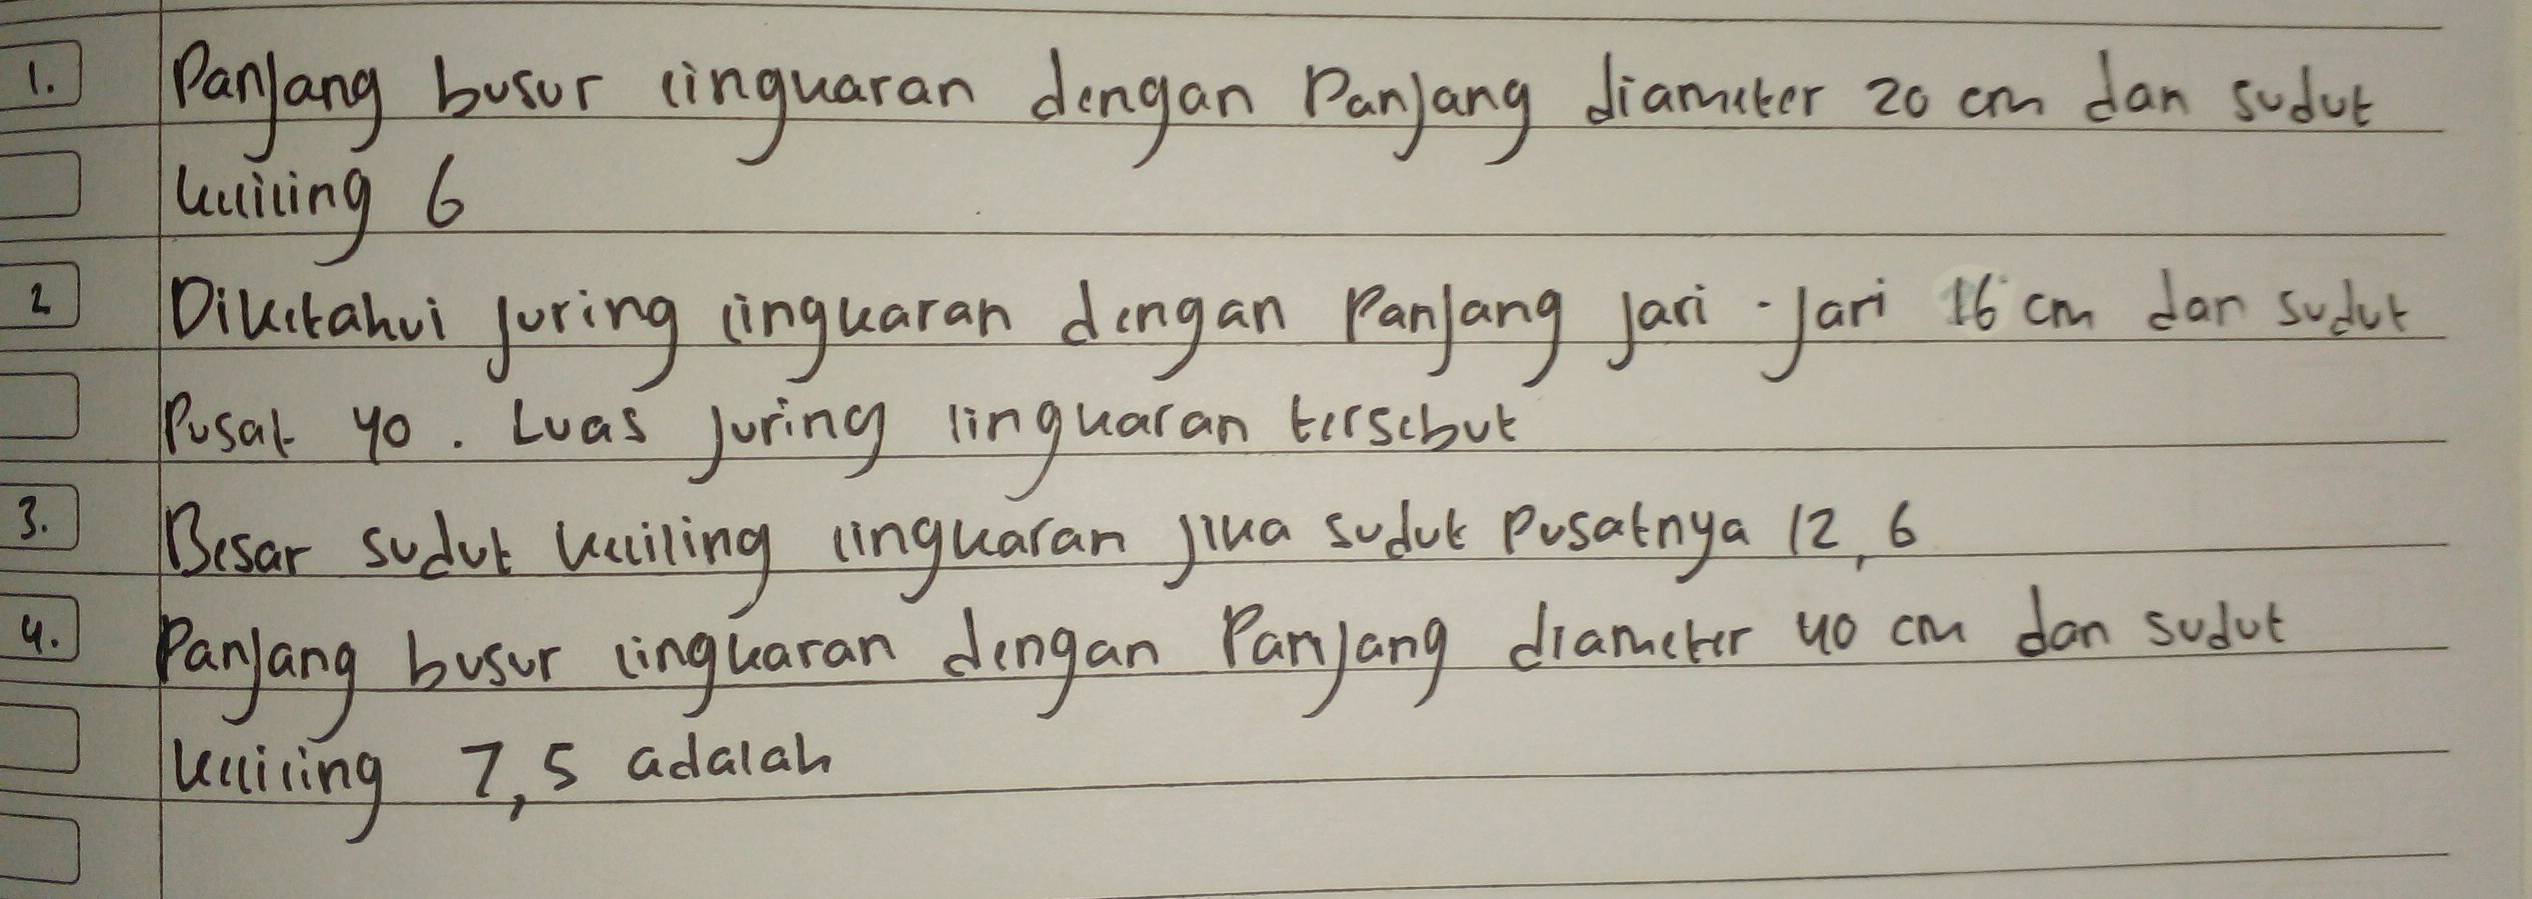 1. Panjang busur lingkaran dengan Panjang diameter 20 cm dan sudut
keliling 6
2 Diketahui juring lingkaran dengan Panjang jari - jari 16 cm dan sudut
Pusat 40 . Luas juring lingkaran tersebut
3. Besar sudut keliling lingkaran jika sudut Pusatnya 12,6
4. Panjang busur lingkaran dengan Panjang diameter 40 cm dan sudut
keliling 7,5 adalah